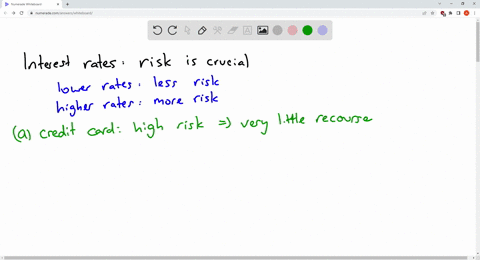 Numerade Whiteboard
numerade.com/answers/whiteboard/
Interest rates: risk is crucial
lower rates: less risk
higher rates: more risk
(a) credit card: high risk => very little recourse